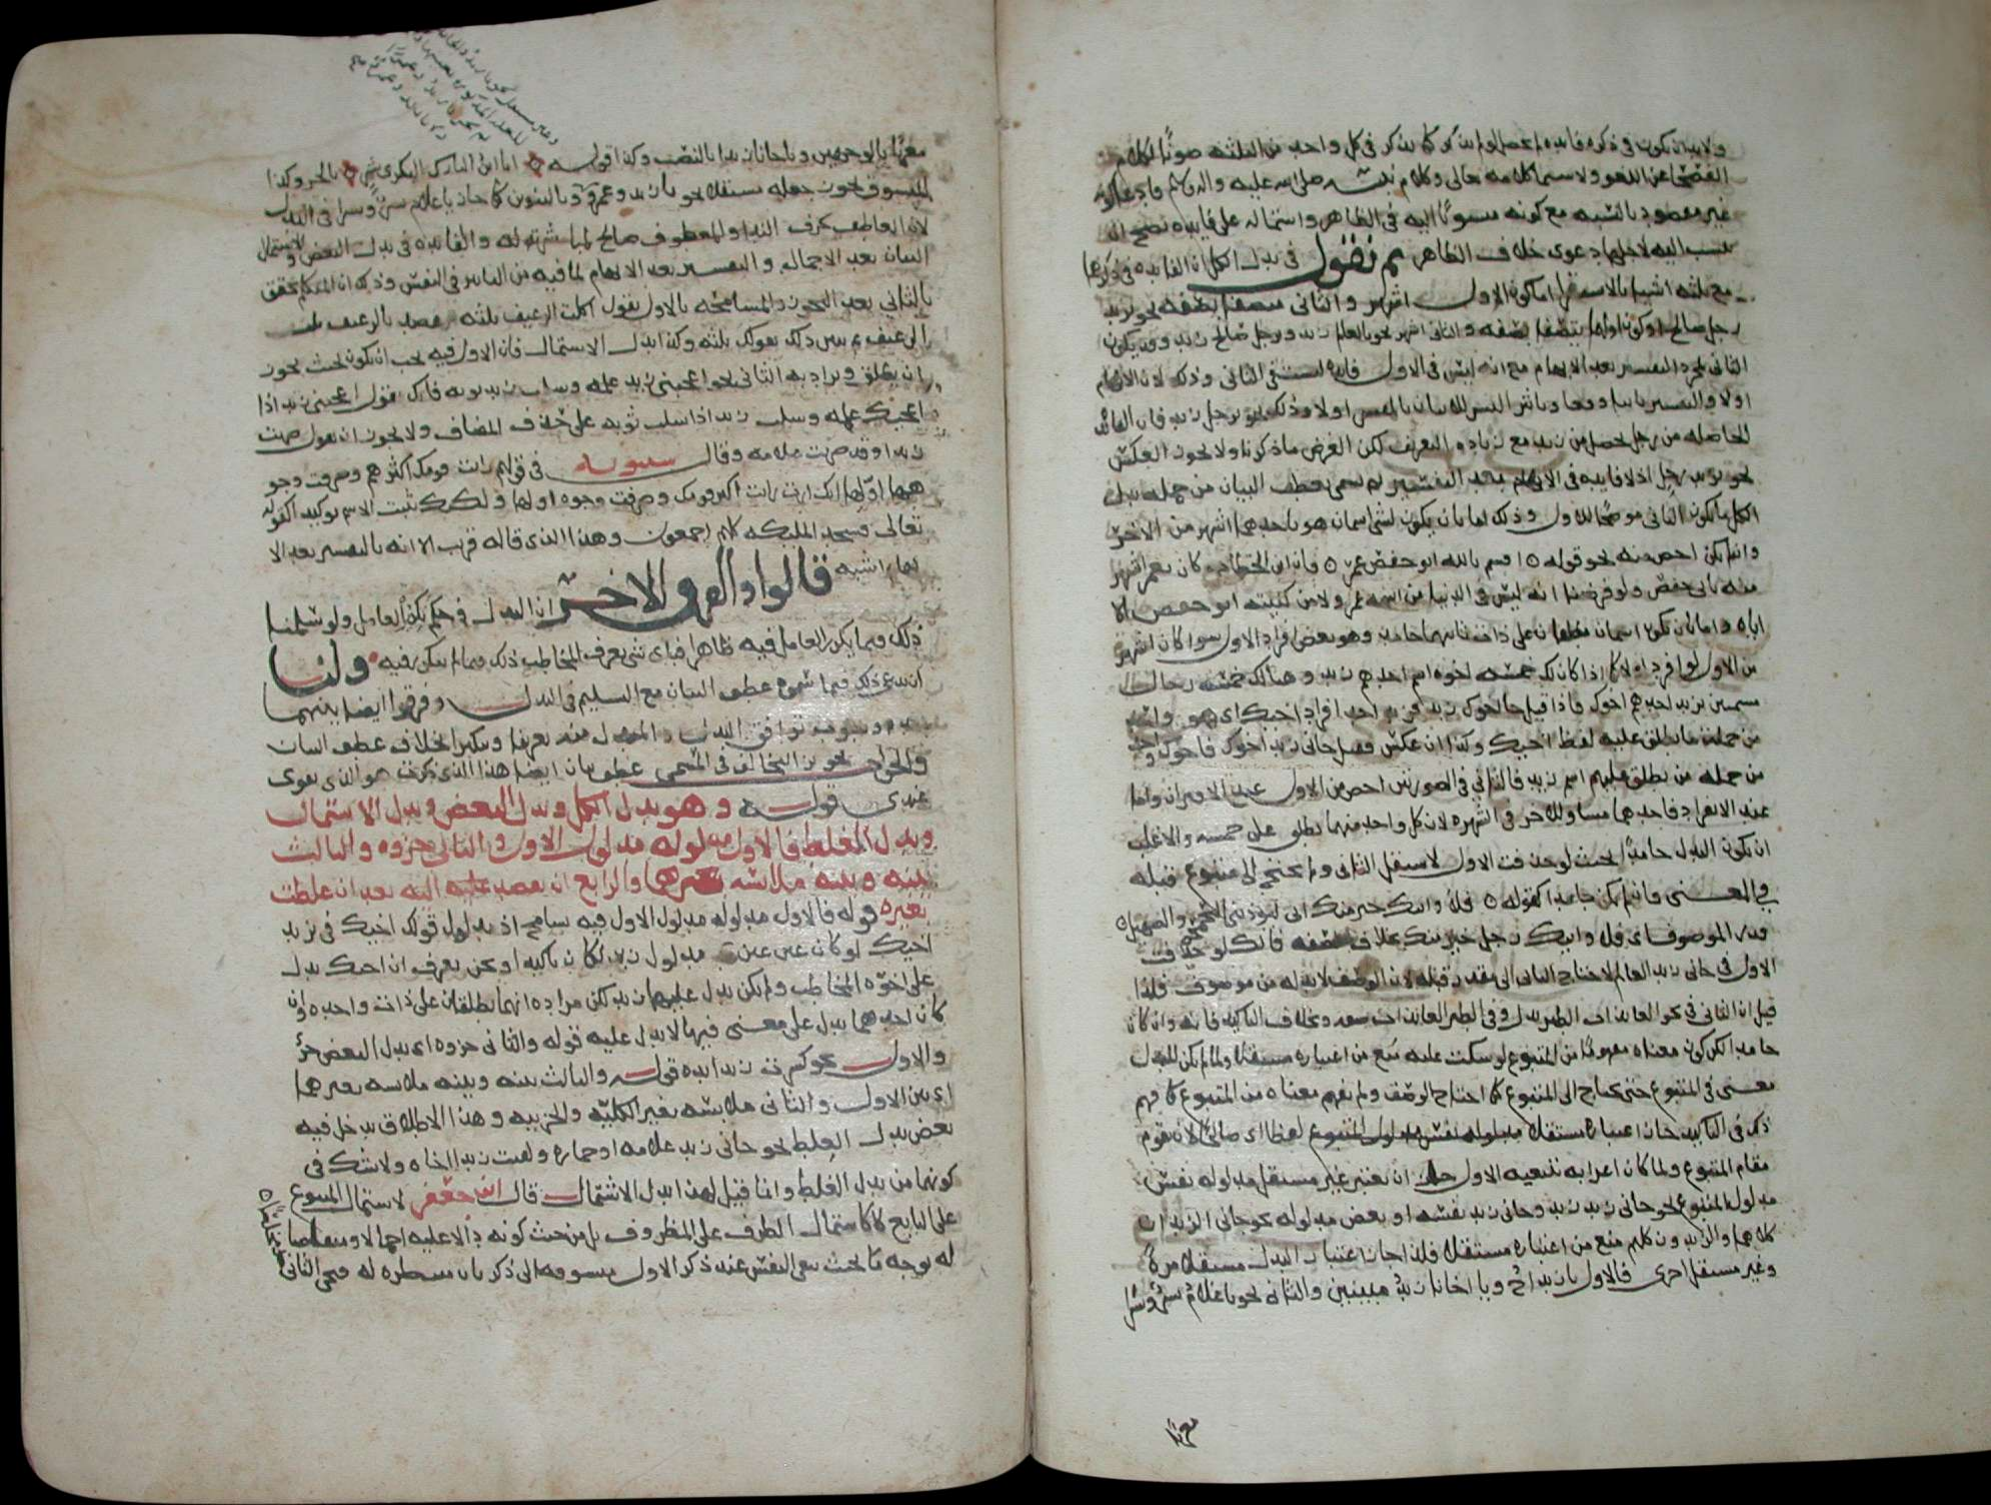 ولا بد ان يكون في ذكره فائده لم تحصل لو لم يذكر كما يذكر في كل واحد من الثلثه صونا لكلام
الفصحا عن اللغو ولا سيما كلامه تعالى وكلام نبيه صلى الله عليه واله وسلم فادعا كونه
غير مقصود بالنسبه مع كونه منسوبا اليه في الظاهر واشتماله على فايده يصح ان
ينسب اليه لاجلها دعوى خلاف الظاهر ثم نقول في بدل الكل ان الفايده في ذكرهما
مع ثلثه اشيا بالاستقرا اما كون الاول اشهر والثاني متصفا بصفه نحو بزيد
رجل صالح او كون اولهما متصفا بصفه والثاني اشهر نحو بالعالم زيد وبرجل صالح زيد وقد يكون
الثاني لمجرد التفسير بعد الابهام مع انه ليس في الاول فايده ليست في الثاني وذلك لان للابهام
اولا والتفسير ثانيا وقعا وتاثيرا ليس للاتيان بالمفسر اولا وذلك نحو برجل زيد فان الفائده
الحاصله من رجل تحصل من زيد مع زياده التعريف لكن الغرض ما ذكرنا ولا يجوز العكس
نحو بزيد رجل اذ لا فايده في الابهام بعد التفسير ثم يسمى بعطف البيان من جمله بدل
الكل ما يكون الثاني موضحا للاول وذلك اما بان يكون لشى اسمان هو باحدهما اشهر من الاخر
وان لم يكن اخص منه نحو قوله ٥ اقسم بالله ابو حفص عمر ٥ فان ابن الخطاب كان بعمر اشهر
منه بابي حفص ولو فرضنا انه ليس في الدنيا من اسمه عمر ولا من كنيته ابو حفص الا
اياه واما بان يكون اسمان مطلقان على ذات ثانيهما خاص وهو بعض افراد الاول سوا كان اشهر
من الاول لو افرد او لا كما اذا كان لك خمسه اخوه اسم احدهم زيد وهناك خمسه رجال
مسمين بزيد احدهم اخوك فاذا قيل جا اخوك زيد فزيد احد افراد اخيك اي هو واحد
من جمله ما يطلق عليه لفظ اخيك وكذا ان عكس فقيل جاني زيد اخوك فاخوك واحد
من جمله من يطلق عليهم اسم زيد فالثاني في الصورتين اخص من الاول عند الاقتران واما
عند الانفراد فاحدهما مساو للاخر في الشهره لان كل واحد منهما يطلق على خمسه والاغلب
ان يكون البدل جامدا بحيث لو حذفت الاول لاستقل الثاني ولم يحتج الى متبوع قبله
في المعنى فان لم يكن جامدا كقوله ٥ فلا وابيك خير منك اني ليؤذيني التحمحم والصهيل ٥
فقدر الموصوف اي فلا وابيك رجل خير منك بخلاف الصفه فانك لو حذفت
الاول في جاني زيد العالم لاحتاج الثاني الى مقدر قبله لان الوصف لا بد له من موصوف فلذا
قيل ان الثاني في نحو العائذات الطير بدل وفي الطير العائذات صفه وبخلاف التاكيد فانه وان كان
جامدا لكن كون معناه مفهوما من المتبوع لو سكت عليه منع من اعتباره مستقلا ولما لم يكن للبدل
معنى في المتبوع حتى يحتاج الى المتبوع كما احتاج الوصف ولم يفهم معناه من المتبوع كما فهم
ذلك في التاكيد جاز اعتباره مستقلا مدلوله نفس مدلول المتبوع لفظا اي صالحا لان يقوم
مقام المتبوع ولما كان اعرابه بتبعيه الاول جاز ان يعتبر غير مستقل مدلوله نفس
مدلول المتبوع نحو جاني زيد زيد وجاني زيد نفسه او بعض مدلوله نحو جاني الزيدان
كلاهما والزيدون كلهم منع من اعتباره مستقلا فلذا جاز اعتبار البدل مستقلا مرة
وغير مستقل اخرى فالاول يا زيد اخ ويا اخانا زيد مبنيين والثاني نحو يا غلام بشر وبشرا
معربا
معربا يا لاوجهين ويا اخانا زيدا بالنصب وكذا قوله انا ابن التارك البكري بشر بالجر وكذا
المنسوق يجوز جعله مستقلا نحو يا زيد وعمرو وبالتنوين كما جاز يا غلام بشر وبشرا في البدل
لان العاطف كحرف الندا والمعطوف صالح لمباشرته له والفايده في بدل البعض والاشتمال
البيان بعد الاجمال والتفسير بعد الابهام لما فيه من التاثير في النفس وذلك ان المتكلم يحقق
بالثاني بعد التجوز والمسامحه بالاول تقول اكلت الرغيف ثلثه فتقصد بالرغيف ثلث
الرغيف ثم تبين ذلك بقولك ثلثه وكذا بدل الاشتمال فان الاول فيه يجب ان يكون بحيث يجوز
ان يطلق ويراد به الثاني نحو اعجبني زيد علمه وسلب زيد ثوبه فانك تقول اعجبني زيد اذا
اعجبك علمه وسلب زيد اذا سلب ثوبه على حذف المضاف ولا يجوز ان تقول ضربت
زيدا وقد ضربت غلامه وقال سيبويه في قولهم رايت قومك اكثرهم وصرفت وجو
ههما اولها انك اردت رايت اكثر قومك وصرفت وجوه اولها ولكنك ثنيت الاسم توكيدا كقوله
تعالى فسجد الملئكه كلهم اجمعون وهذا الذي قاله قريب الا انه بالتفسير بعد الا
بهام اشبه قالوا والفرق الاخر ان البدل في حكم تكرير العامل ولو سلمنا
ذلك فيما يكرر العامل فيه ظاهرا فباي شي يعرف المخاطب ذلك فيما لم يتكرر فيه ولنا
ان ندعي ذلك فيما سموه عطف البيان مع التسليم في البدل وفرقوا ايضا بينهما
بعدم وجوب توافق البدل والمبدل منه تعريفا وتنكيرا بخلاف عطف البيان
والجواب تجويز التخالف في المسمى عطف بيان ايضا هذا الذي ذكرت هو الذي يقوى
عندي قوله وهو بدل الكل وبدل البعض وبدل الاشتمال
وبدل الغلط فالاول مدلوله مدلول الاول والثاني جزوه والثالث
بينه وبينه ملابسه بغيرهما والرابع ان يقصد اليه بعد ان غلطت
بغيره قوله فالاول مدلوله مدلول الاول فيه تسامح اذ مدلول قولك اخيك في بزيد
اخيك لو كان عين مدلول زيد لكان تاكيدا ونحن نعرف ان اخيك يدل
على اخوه المخاطب ولم يكن يدل عليها زيد لكن مراده انهما يطلقان على ذات واحده وان
كان احدهما يدل على معنى فيها لا يدل عليه قوله والثاني جزوه اي بدل البعض جزو
والاول نحو كسرت زيدا يده قوله والثالث بينه وبينه ملابسه بغيرهما
اي بين الاول والثاني ملابسه بغير الكليه والجزييه وهذا الاطلاق يدخل فيه
بعض بدل الغلط نحو جاني زيد غلامه او حماره ولقيت زيدا اخاه ولا شك في
كونها من بدل الغلط وانما قيل لهذا بدل الاشتمال قال ابن جعفر لاشتمال المتبوع
على التابع لا كاشتمال الظرف على المظروف بل من حيث كونه دالا عليه اجمالا ومتقاضيا
له بوجه ما بحيث تبقى النفس عند ذكر الاول متشوقه الى ذكر ثان منتظره له فيجي الثاني